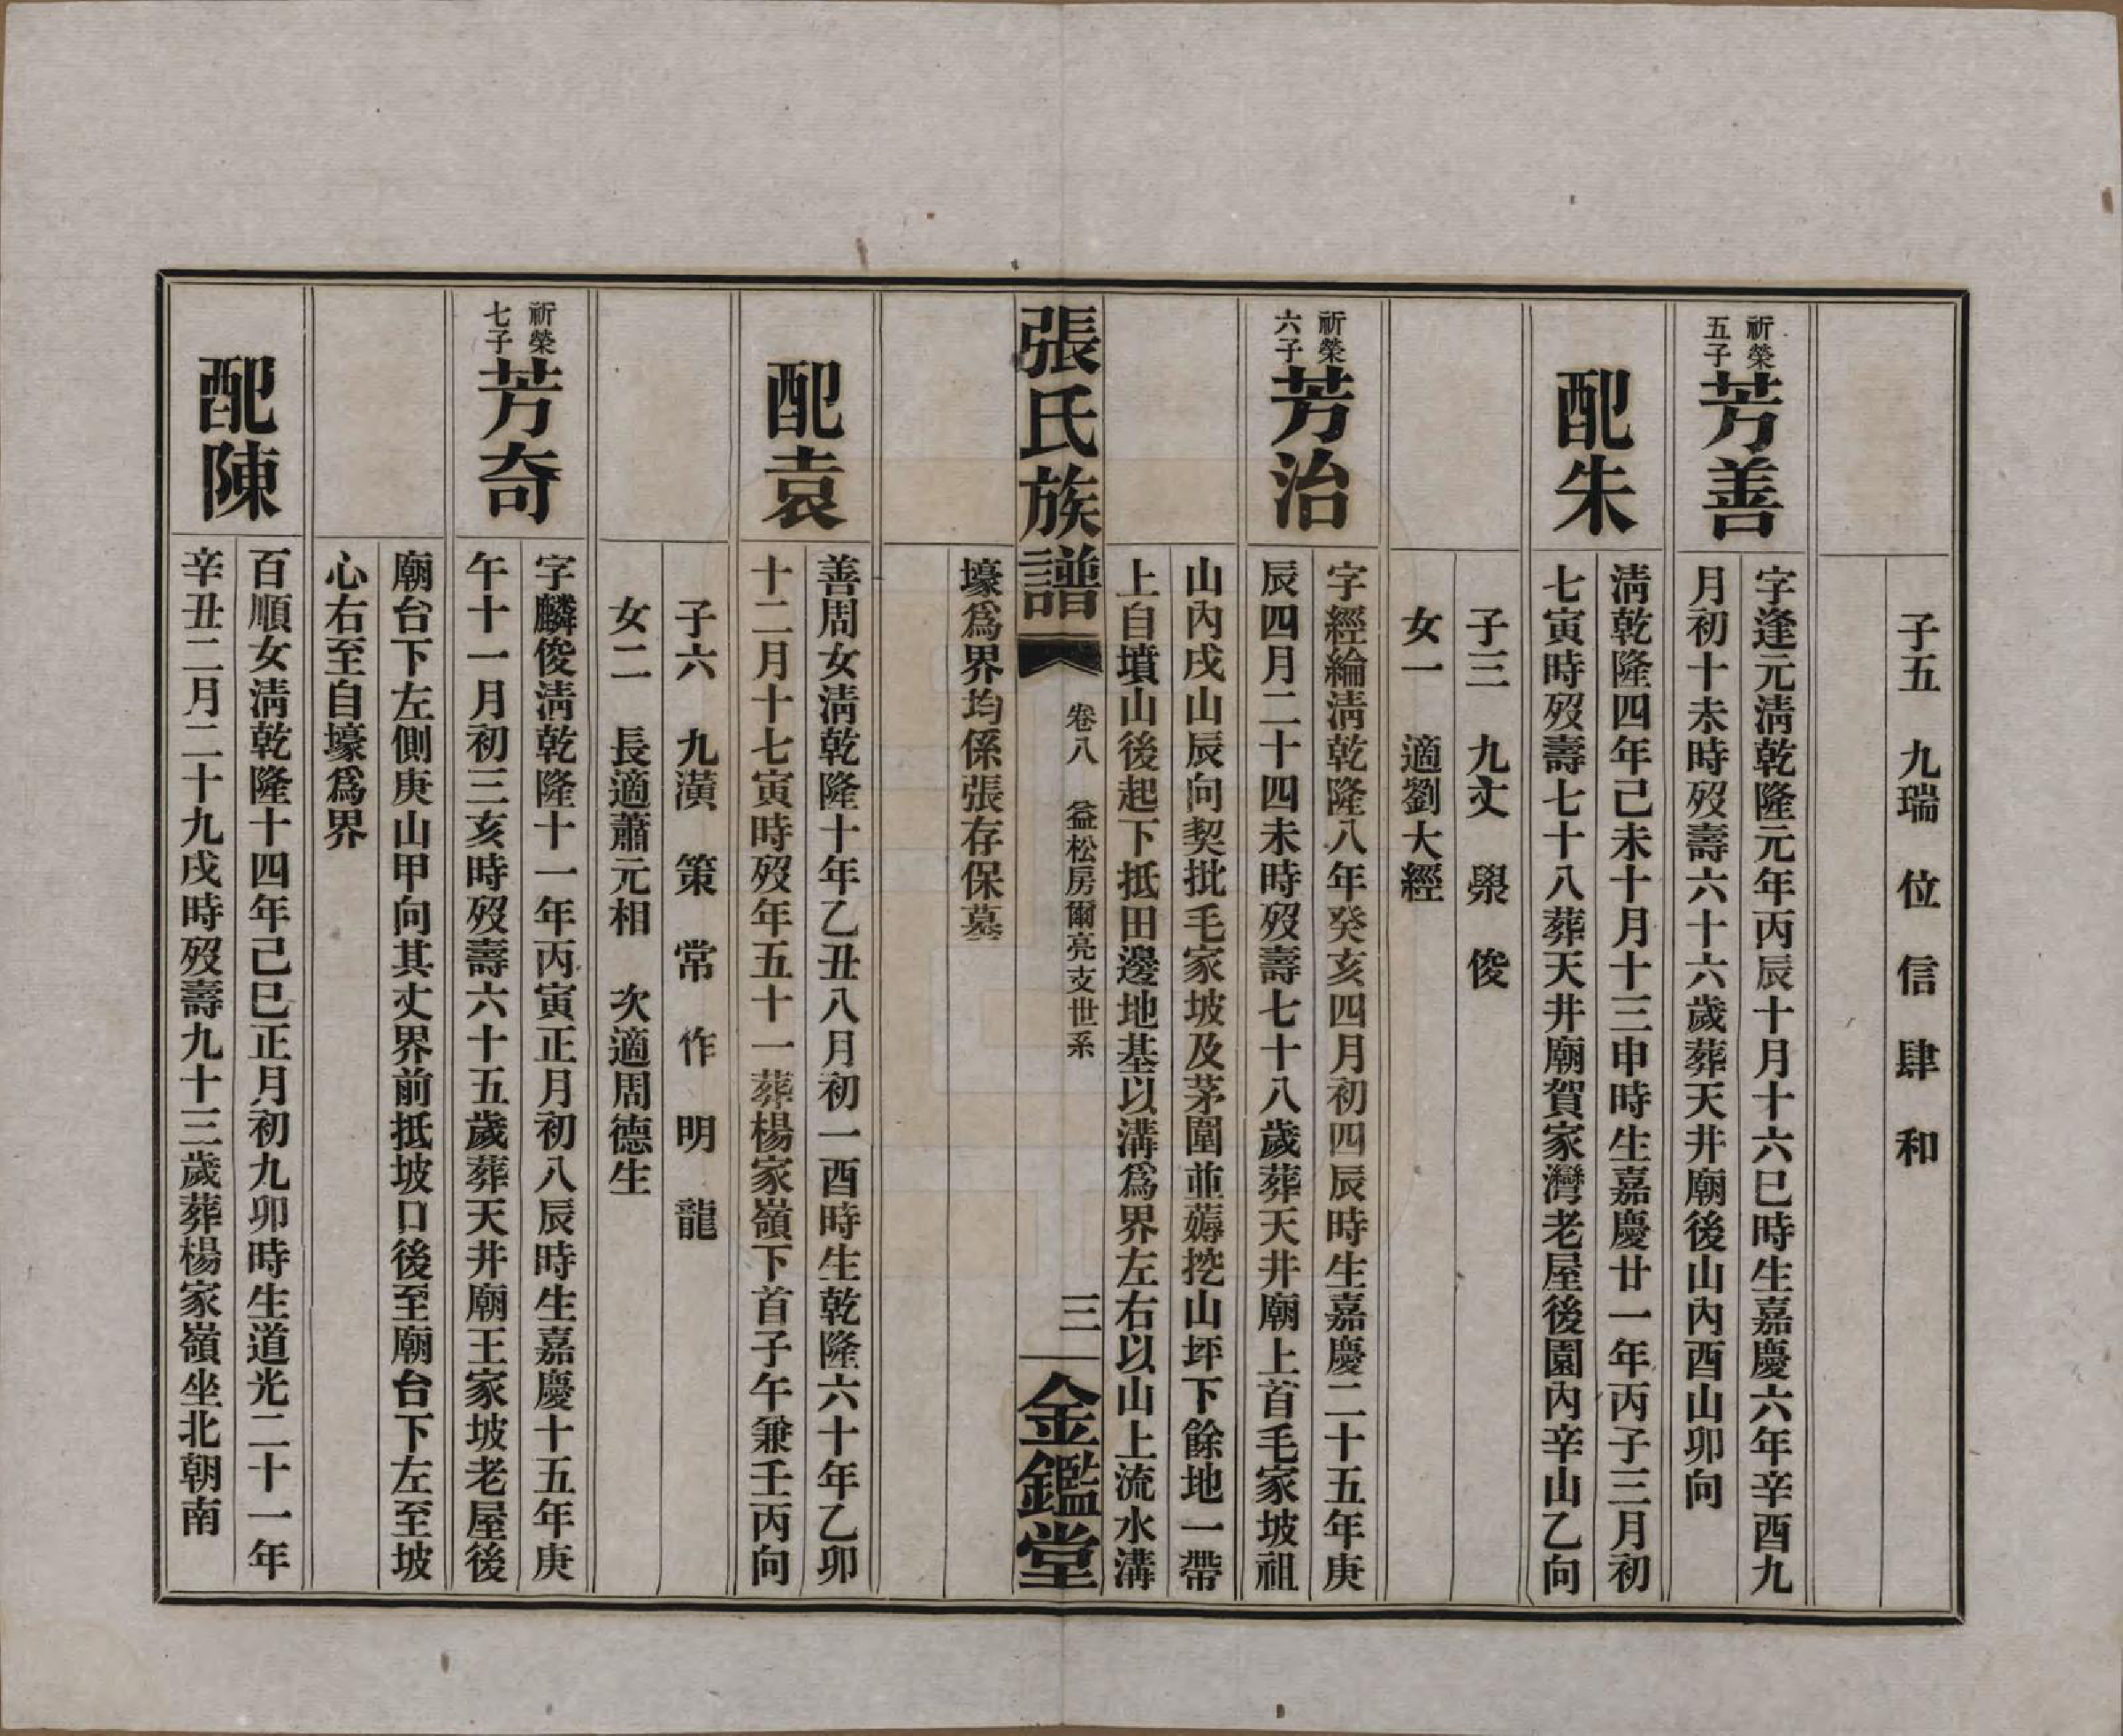 子五　九瑞　位　信　肆　和
祈榮五子
芳善
字逢元淸乾隆元年丙辰十月十六巳時生嘉慶六年辛酉九
月初十未時歿壽六十六歲葬天井廟後山內酉山卯向
配朱
淸乾隆四年己未十月十三申時生嘉慶廿一年丙子三月初
七寅時歿壽七十八葬天井廟賀家灣老屋後園內辛山乙向
子三　九文　舉　俊
女一　適劉大經
祈榮六子
芳治
字經綸淸乾隆八年癸亥四月初四辰時生嘉慶二十五年庚
辰四月二十四未時歿壽七十八歲葬天井廟上首毛家坡祖
山內戌山辰向契批毛家坡及茅圍並薅挖山坪下餘地一帶
上自墳山後起下抵田邊地基以溝爲界左右以山上流水溝
張氏族譜
卷八　益松房爾亮支世系
三
金鑑堂
壕爲界均係張存保墓
配袁
善周女淸乾隆十年乙丑八月初一酉時生乾隆六十年乙卯
十二月十七寅時歿年五十一葬楊家嶺下首子午兼壬丙向
子六　九潢　策　常　作　明　龍
女二　長適蕭元相　次適周德生
祈榮七子
芳奇
字麟俊淸乾隆十一年丙寅正月初八辰時生嘉慶十五年庚
午十一月初三亥時歿壽六十五歲葬天井廟王家坡老屋後
廟台下左側庚山甲向其丈界前抵坡口後至廟台下左至坡
心右至自壕爲界
配陳
百順女淸乾隆十四年己巳正月初九卯時生道光二十一年
辛丑二月二十九戌時歿壽九十三歲葬楊家嶺坐北朝南